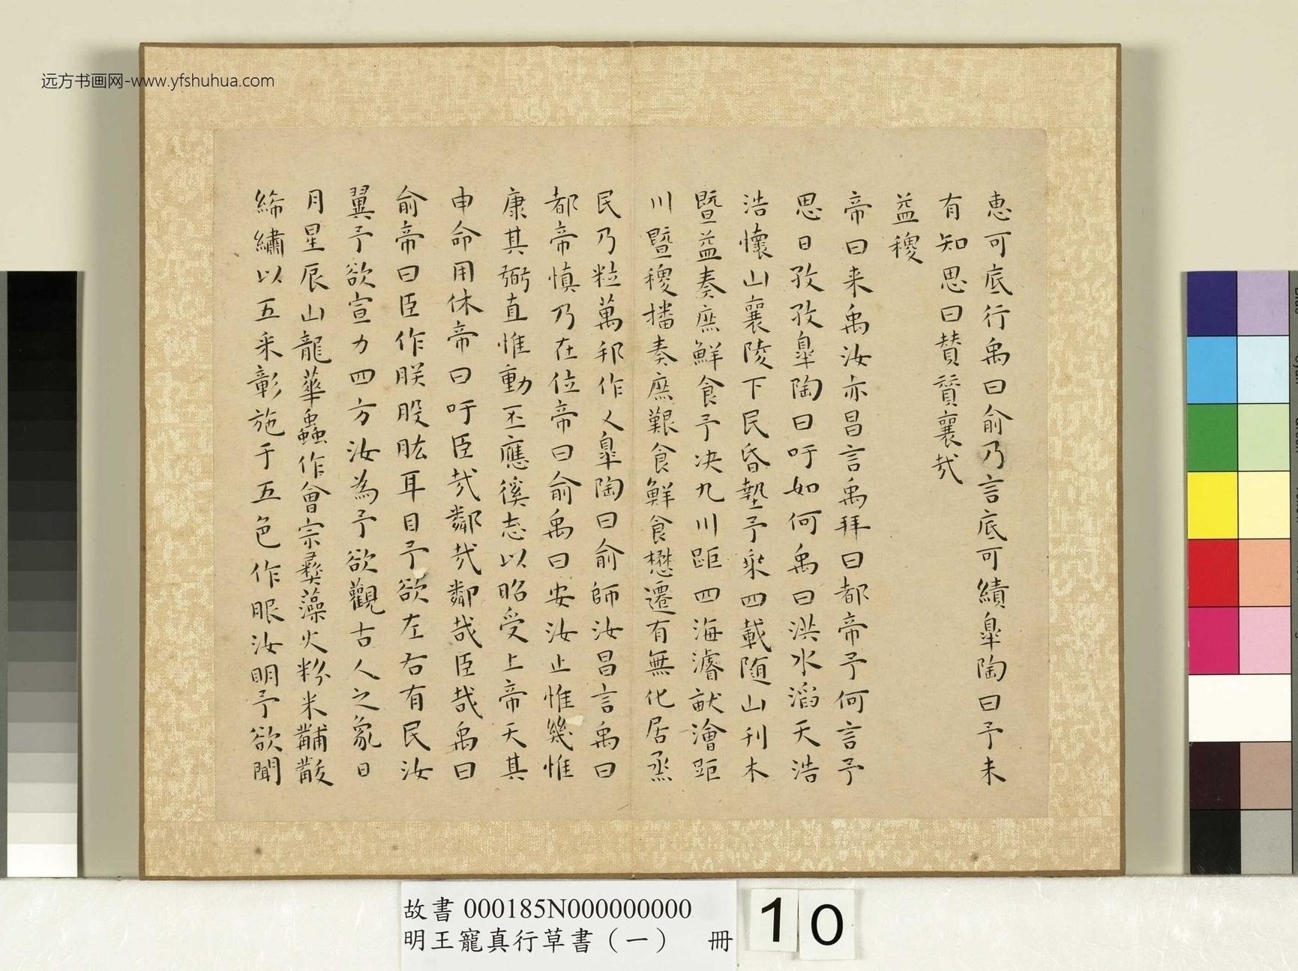 远方书画网-www.yfshuhua.com
惠可底行禹曰俞乃言底可績皐陶曰予未
有知思曰贊贊襄哉
益稷
帝曰来禹汝亦昌言禹拜曰都帝予何言予
思日孜孜皐陶曰吁如何禹曰洪水滔天浩
浩懷山襄陵下民昏墊予乘四載随山刊木
暨益奏庶鮮食予决九川距四海濬畎澮距
川暨稷播奏庶艱食鮮食懋遷有無化居烝
民乃粒萬邦作乂皐陶曰俞師汝昌言禹曰
都帝慎乃在位帝曰俞禹曰安汝止惟幾惟
康其弼直惟動丕應徯志以昭受上帝天其
申命用休帝曰吁臣哉鄰哉鄰哉臣哉禹曰
俞帝曰臣作朕股肱耳目予欲左右有民汝
翼予欲宣力四方汝為予欲觀古人之象日
月星辰山龍華蟲作會宗彝藻火粉米黼黻
絺繡以五采彰施于五色作服汝明予欲聞
故書 000185N000000000
明王寵真行草書（一） 冊
10